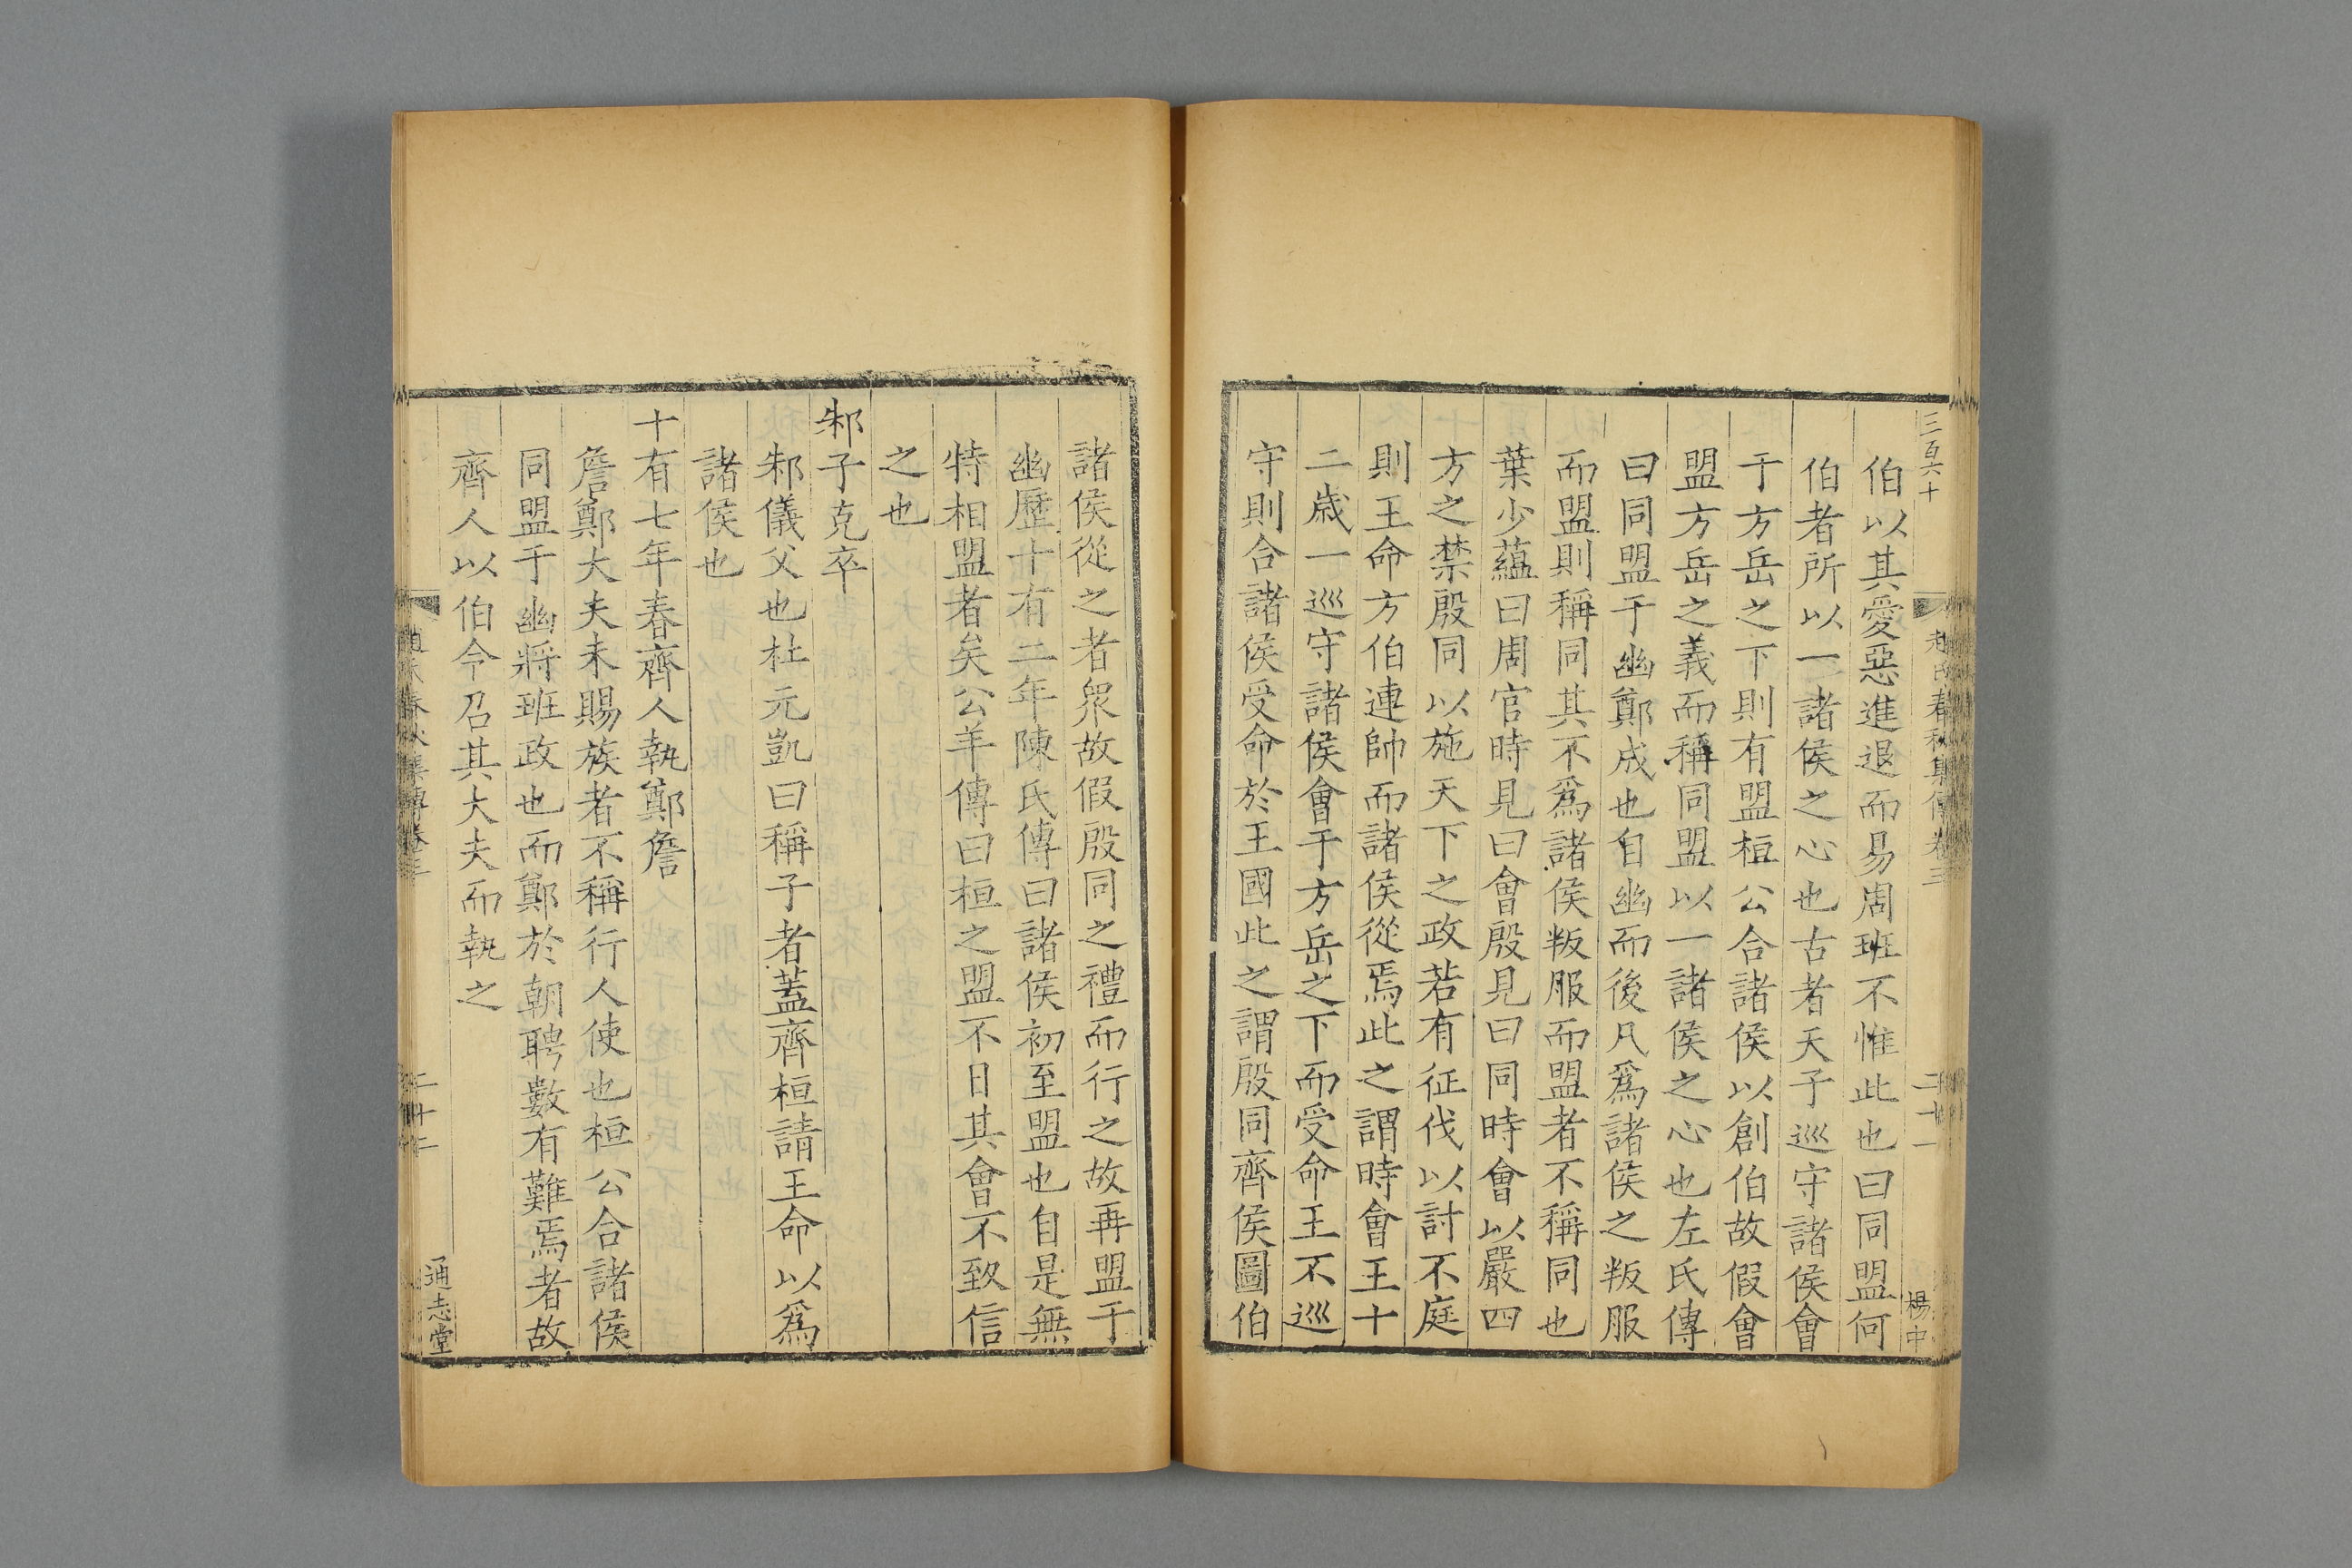 三百六十
趙氏春秋集傳卷三
二十一
楊中
伯以其愛惡進退而易周班不惟此也曰同盟何
伯者所以一諸侯之心也古者天子巡守諸侯會
于方岳之下則有盟桓公合諸侯以創伯故假會
盟方岳之義而稱同盟以一諸侯之心也左氏傳
曰同盟于幽鄭成也自幽而後凡爲諸侯之叛服
而盟則稱同其不爲諸侯叛服而盟者不稱同也
葉少蘊曰周官時見曰會殷見曰同時會以嚴四
方之禁殷同以施天下之政若有征伐以討不庭
則王命方伯連帥而諸侯從焉此之謂時會王十
二歲一巡守諸侯會于方岳之下而受命王不巡
守則合諸侯受命於王國此之謂殷同齊侯圖伯
諸侯從之者衆故假殷同之禮而行之故再盟于
幽歷十有二年陳氏傳曰諸侯初至盟也自是無
特相盟者矣公羊傳曰桓之盟不日其會不致信
之也
邾子克卒
邾儀父也杜元凱曰稱子者蓋齊桓請王命以爲
諸侯也
十有七年春齊人執鄭詹
詹鄭大夫未賜族者不稱行人使也桓公合諸侯
同盟于幽將班政也而鄭於朝聘數有難焉者故
齊人以伯令召其大夫而執之
趙氏春秋集傳卷三
二十二
通志堂